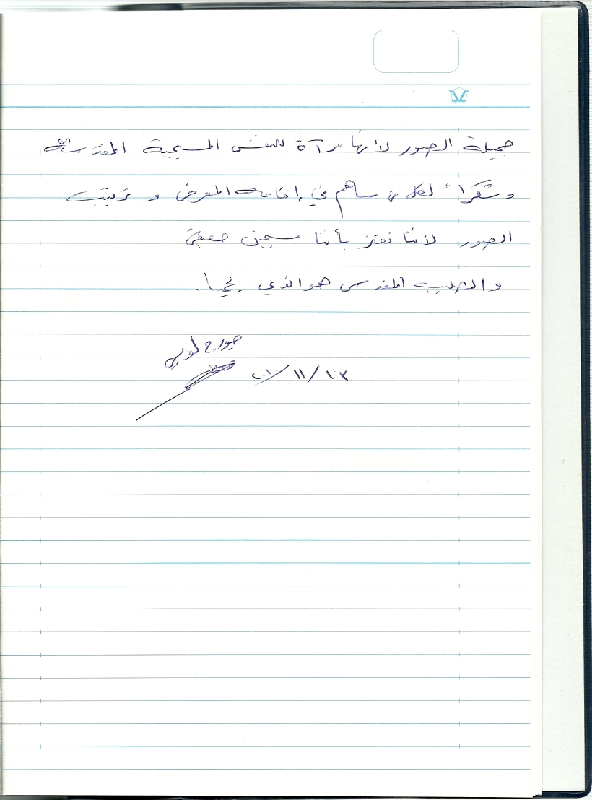 جميلة الصور لأنها مرآة للنفس المسيحية المقدسة
وشكراً لكل من ساهم في إقامة المعرض و ترتيب
الصور لأننا نعتز بأننا مسيحيين
والصليب المقدس هو الذي يحمينا.
جورج